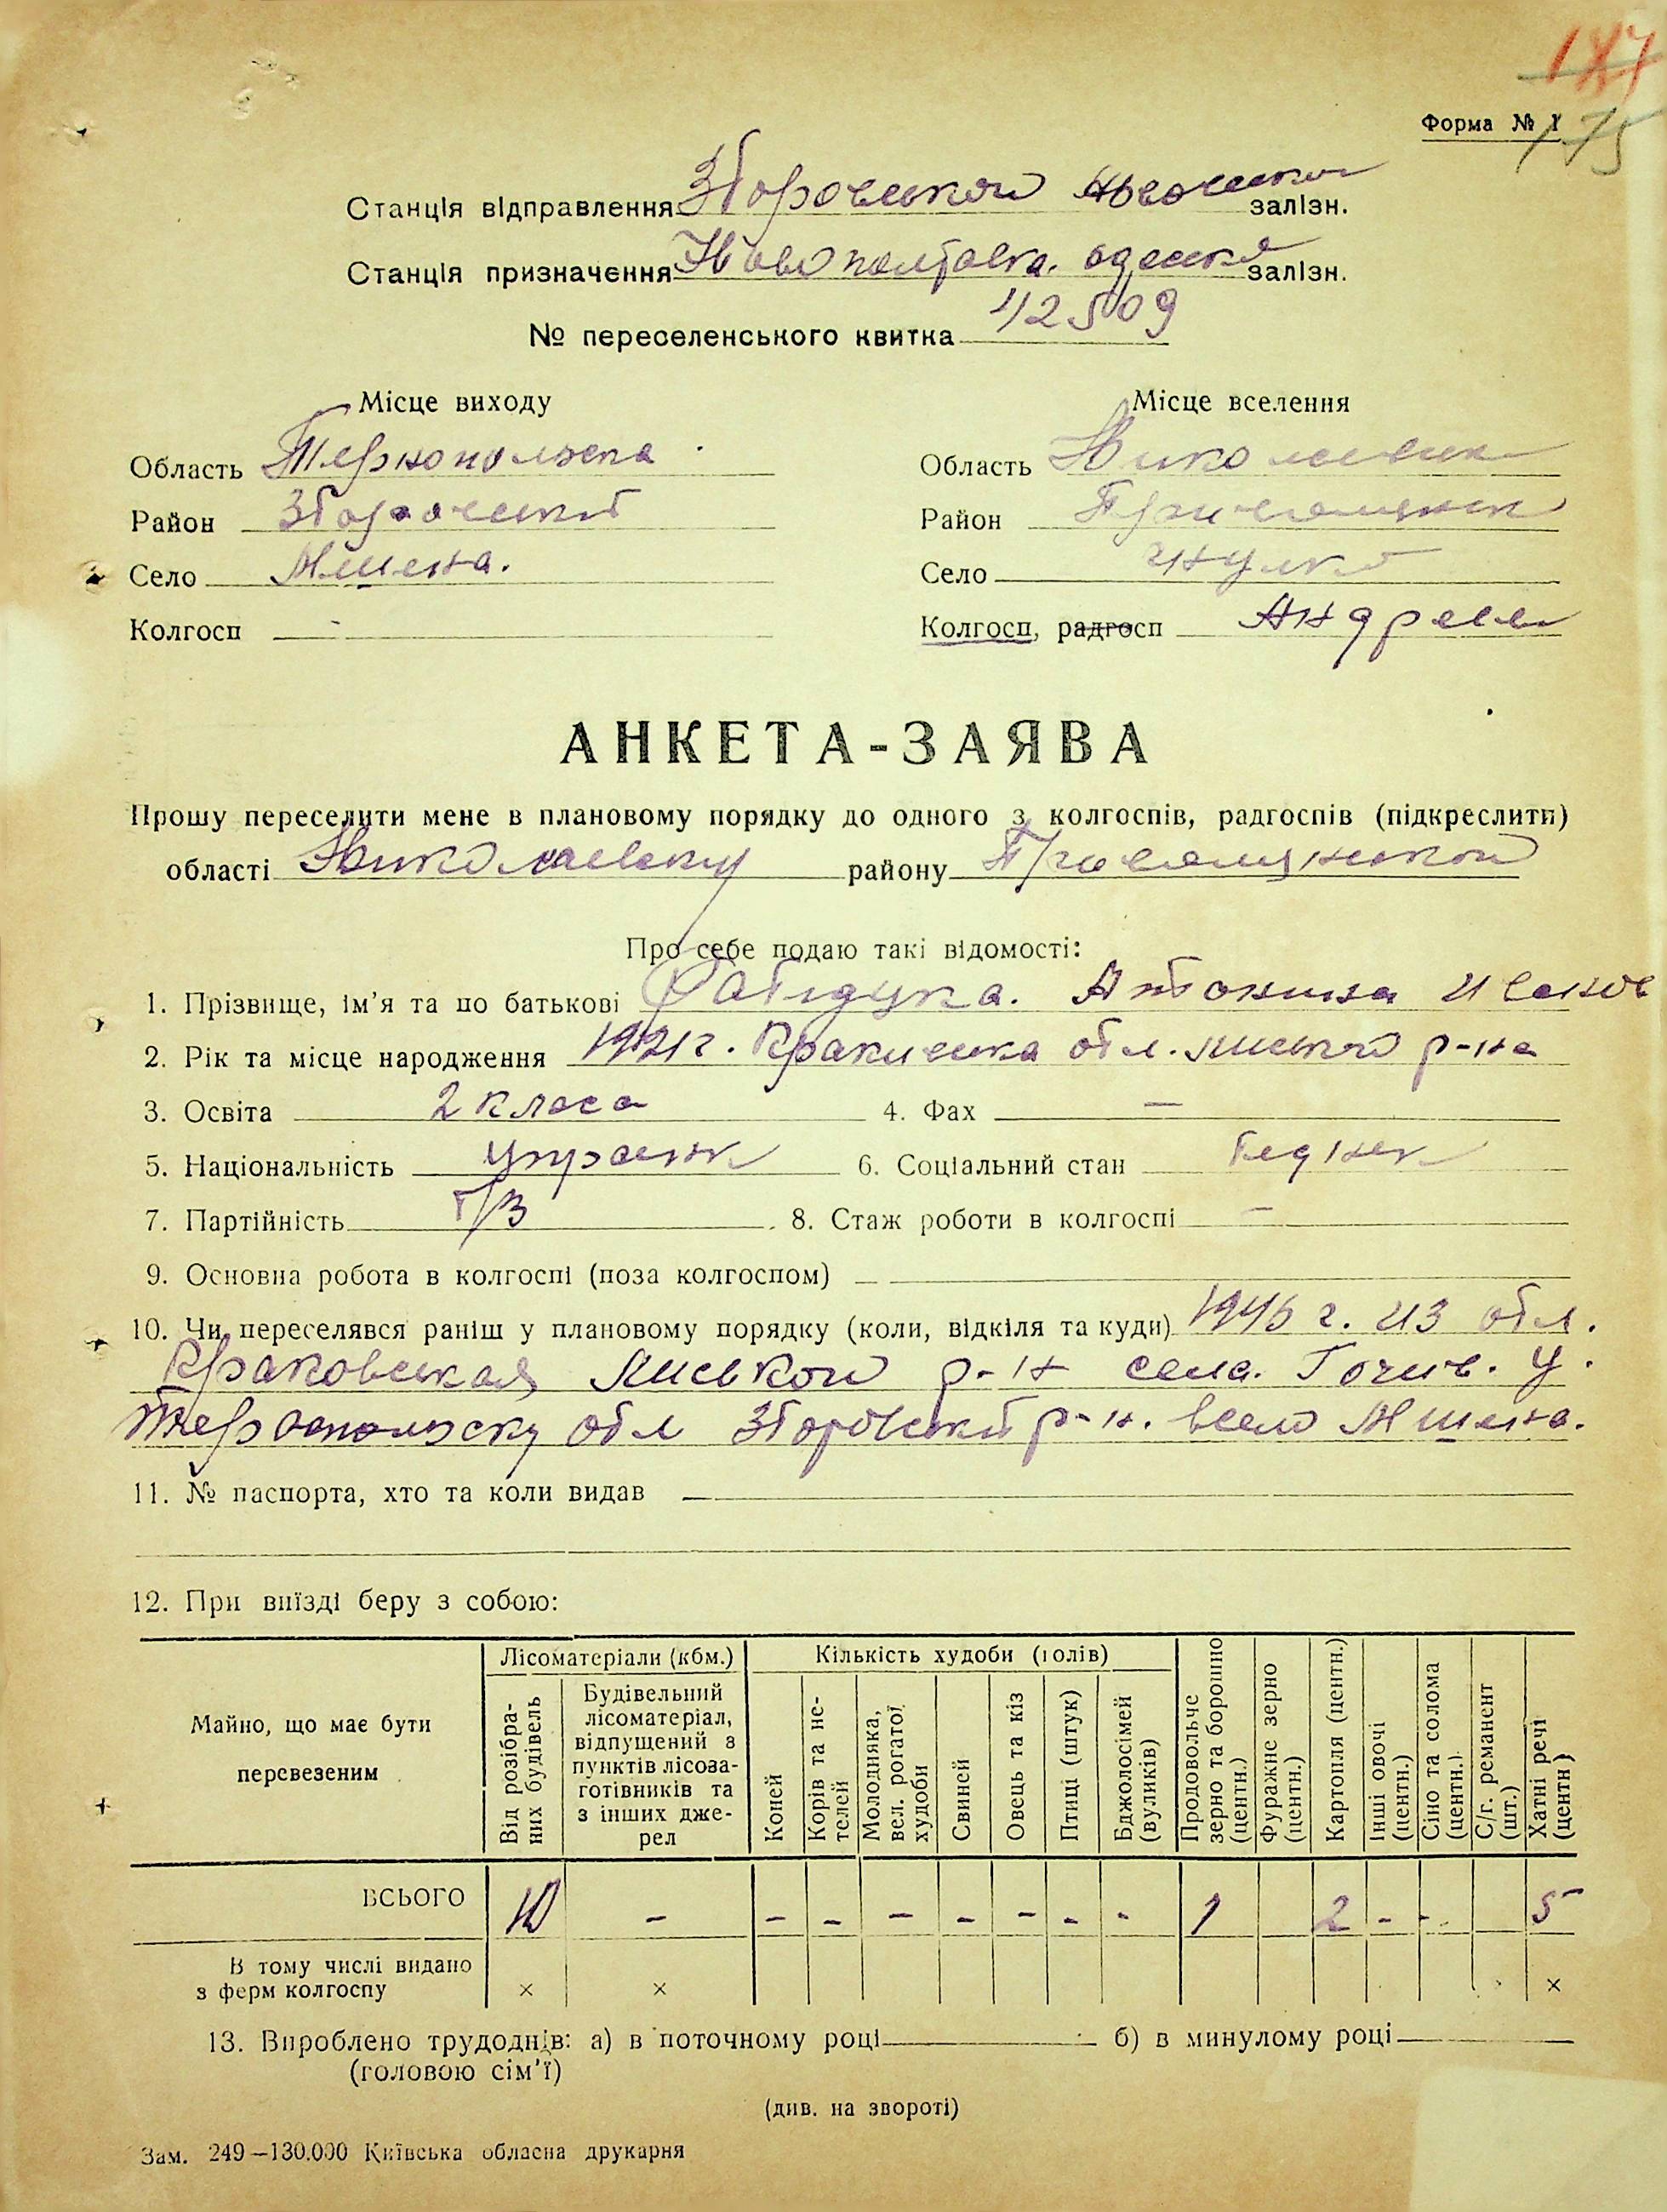 187
175
Форма № 1
Станція відправлення Зборовской Львовской залізн.
Станція призначення Новополтавка. одеска залізн.
№ переселенського квитка 42509
Місце виходу Місце вселення
Область Тернопольска Область Николаевска
Район Зборовский Район
Село Мшена. Село
Колгосп - Колгосп, радгосп Андреев
АНКЕТА-ЗАЯВА
Прошу переселити мене в плановому порядку до одного з колгоспів, радгоспів (підкреслити)
області Николаевску району
Про себе подаю такі відомості:
1. Прізвище, ім'я та по батькові Антонина
2. Рік та місце народження 1921 г. обл. р-на
3. Освіта 2 класа 4. Фах —
5. Національність украенк 6. Соціальний стан бедняк
7. Партійність б/п 8. Стаж роботи в колгоспі —
9. Основна робота в колгоспі (поза колгоспом) —
10. Чи переселявся раніш у плановому порядку (коли, відкіля та куди) 1945 г. из обл.
Краковская Лиськой р-н села. Гочив. у.
Тернопольску обл Зборовский р-н. всело Мшена.
11. № паспорта, хто та коли видав —
12. При виїзді беру з собою:
Майно, що має бути перевезеним
Лісоматеріали (кбм.) Кількість худоби (голів)
Від розібраних будівель
Будівельний лісоматеріал, відпущений з пунктів лісозаготівників та з інших джерел
Коней
Корів та нетелей
Молодняка, вел. рогатої худоби
Свиней
Овець та кіз
Птиці (штук)
Бджолосімей (вуликів)
Продовольче зерно та борошно (центн.)
Фуражне зерно (центн.)
Картопля (центн.)
Інші овочі (центн.)
Сіно та солома (центн.)
С/г. реманент (шт.)
Хатні речі (центн)
ВСЬОГО 10 - - - - - - - - 1 2 - - 5
В тому числі видано
з ферм колгоспу × × ×
13. Вироблено трудоднів: а) в поточному році б) в минулому році
(головою сім'ї)
(див. на звороті)
Зам. 249—130.000 Київська обласна друкарня